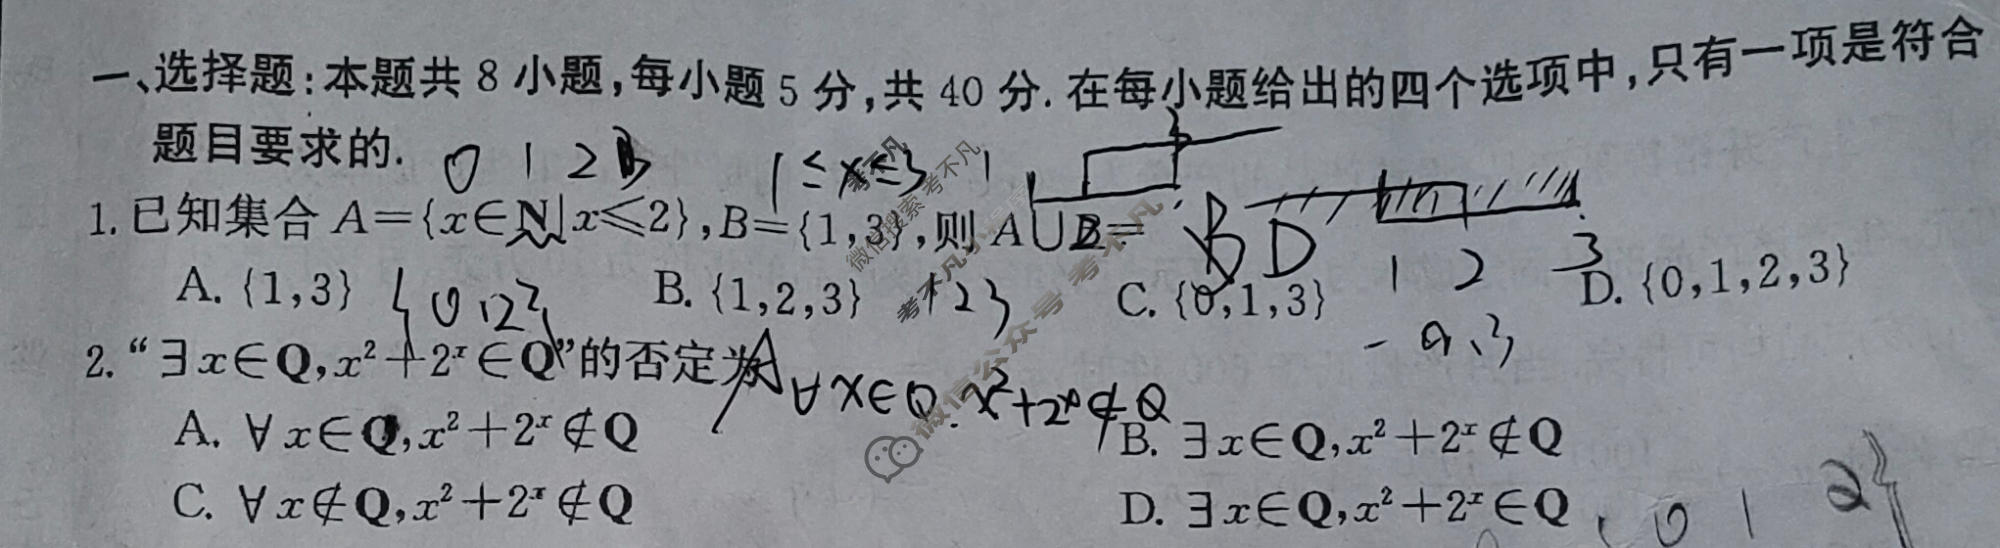 一、选择题:本题共 8 小题,每小题 5 分,共 40 分. 在每小题给出的四个选项中,只有一项是符合
题目要求的.
0 1 2
1≤x≤3
1. 已知集合 A={x∈N|x≤2},B={1,3},则 A∪B=
B D
1 2 3
A. {1,3}
{0 1 2}
B. {1,2,3}
1 2 3
C. {0,1,3}
D. {0,1,2,3}
2. “∃x∈Q,x²+2ˣ∈Q”的否定为
A
∀x∈Q.x²+2ˣ∉Q
A. ∀x∈Q,x²+2ˣ∉Q
B. ∃x∈Q,x²+2ˣ∉Q
C. ∀x∉Q,x²+2ˣ∉Q
D. ∃x∈Q,x²+2ˣ∈Q
0 1 2}
微信搜索 考不凡
微信公众号 考不凡